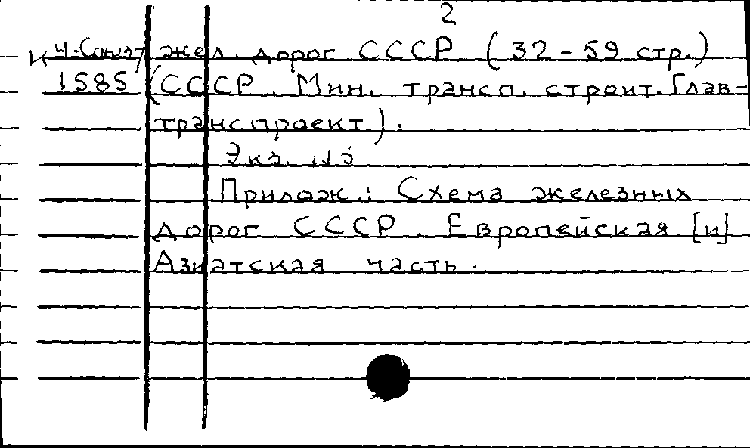 2
жел. дорог СССР (32-59 стр.)
1585 (СССР. Мин. трансп. строит. Глав-
транспроект).
Экз. №5
Прилож.: Схема железных
дорог СССР. Европейская [и]
Азиатская часть.